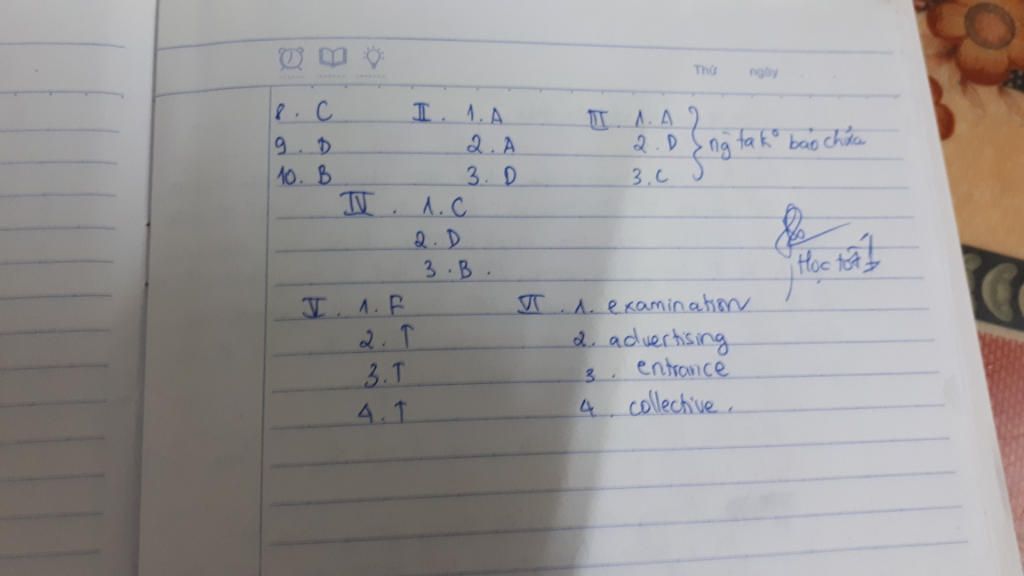 Thứ ngày
8. C II. 1. A III 1. A
9. D 2. A 2. D ng ta k° bảo chữa
10. B 3. D 3. C
IV. 1. C
2. D
3. B.
Học tốt!
V. 1. F VI. 1. examination
2. T 2. advertising
3. T 3. entrance
4. T 4. collective.